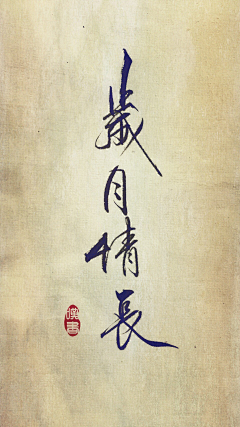 歲月情長